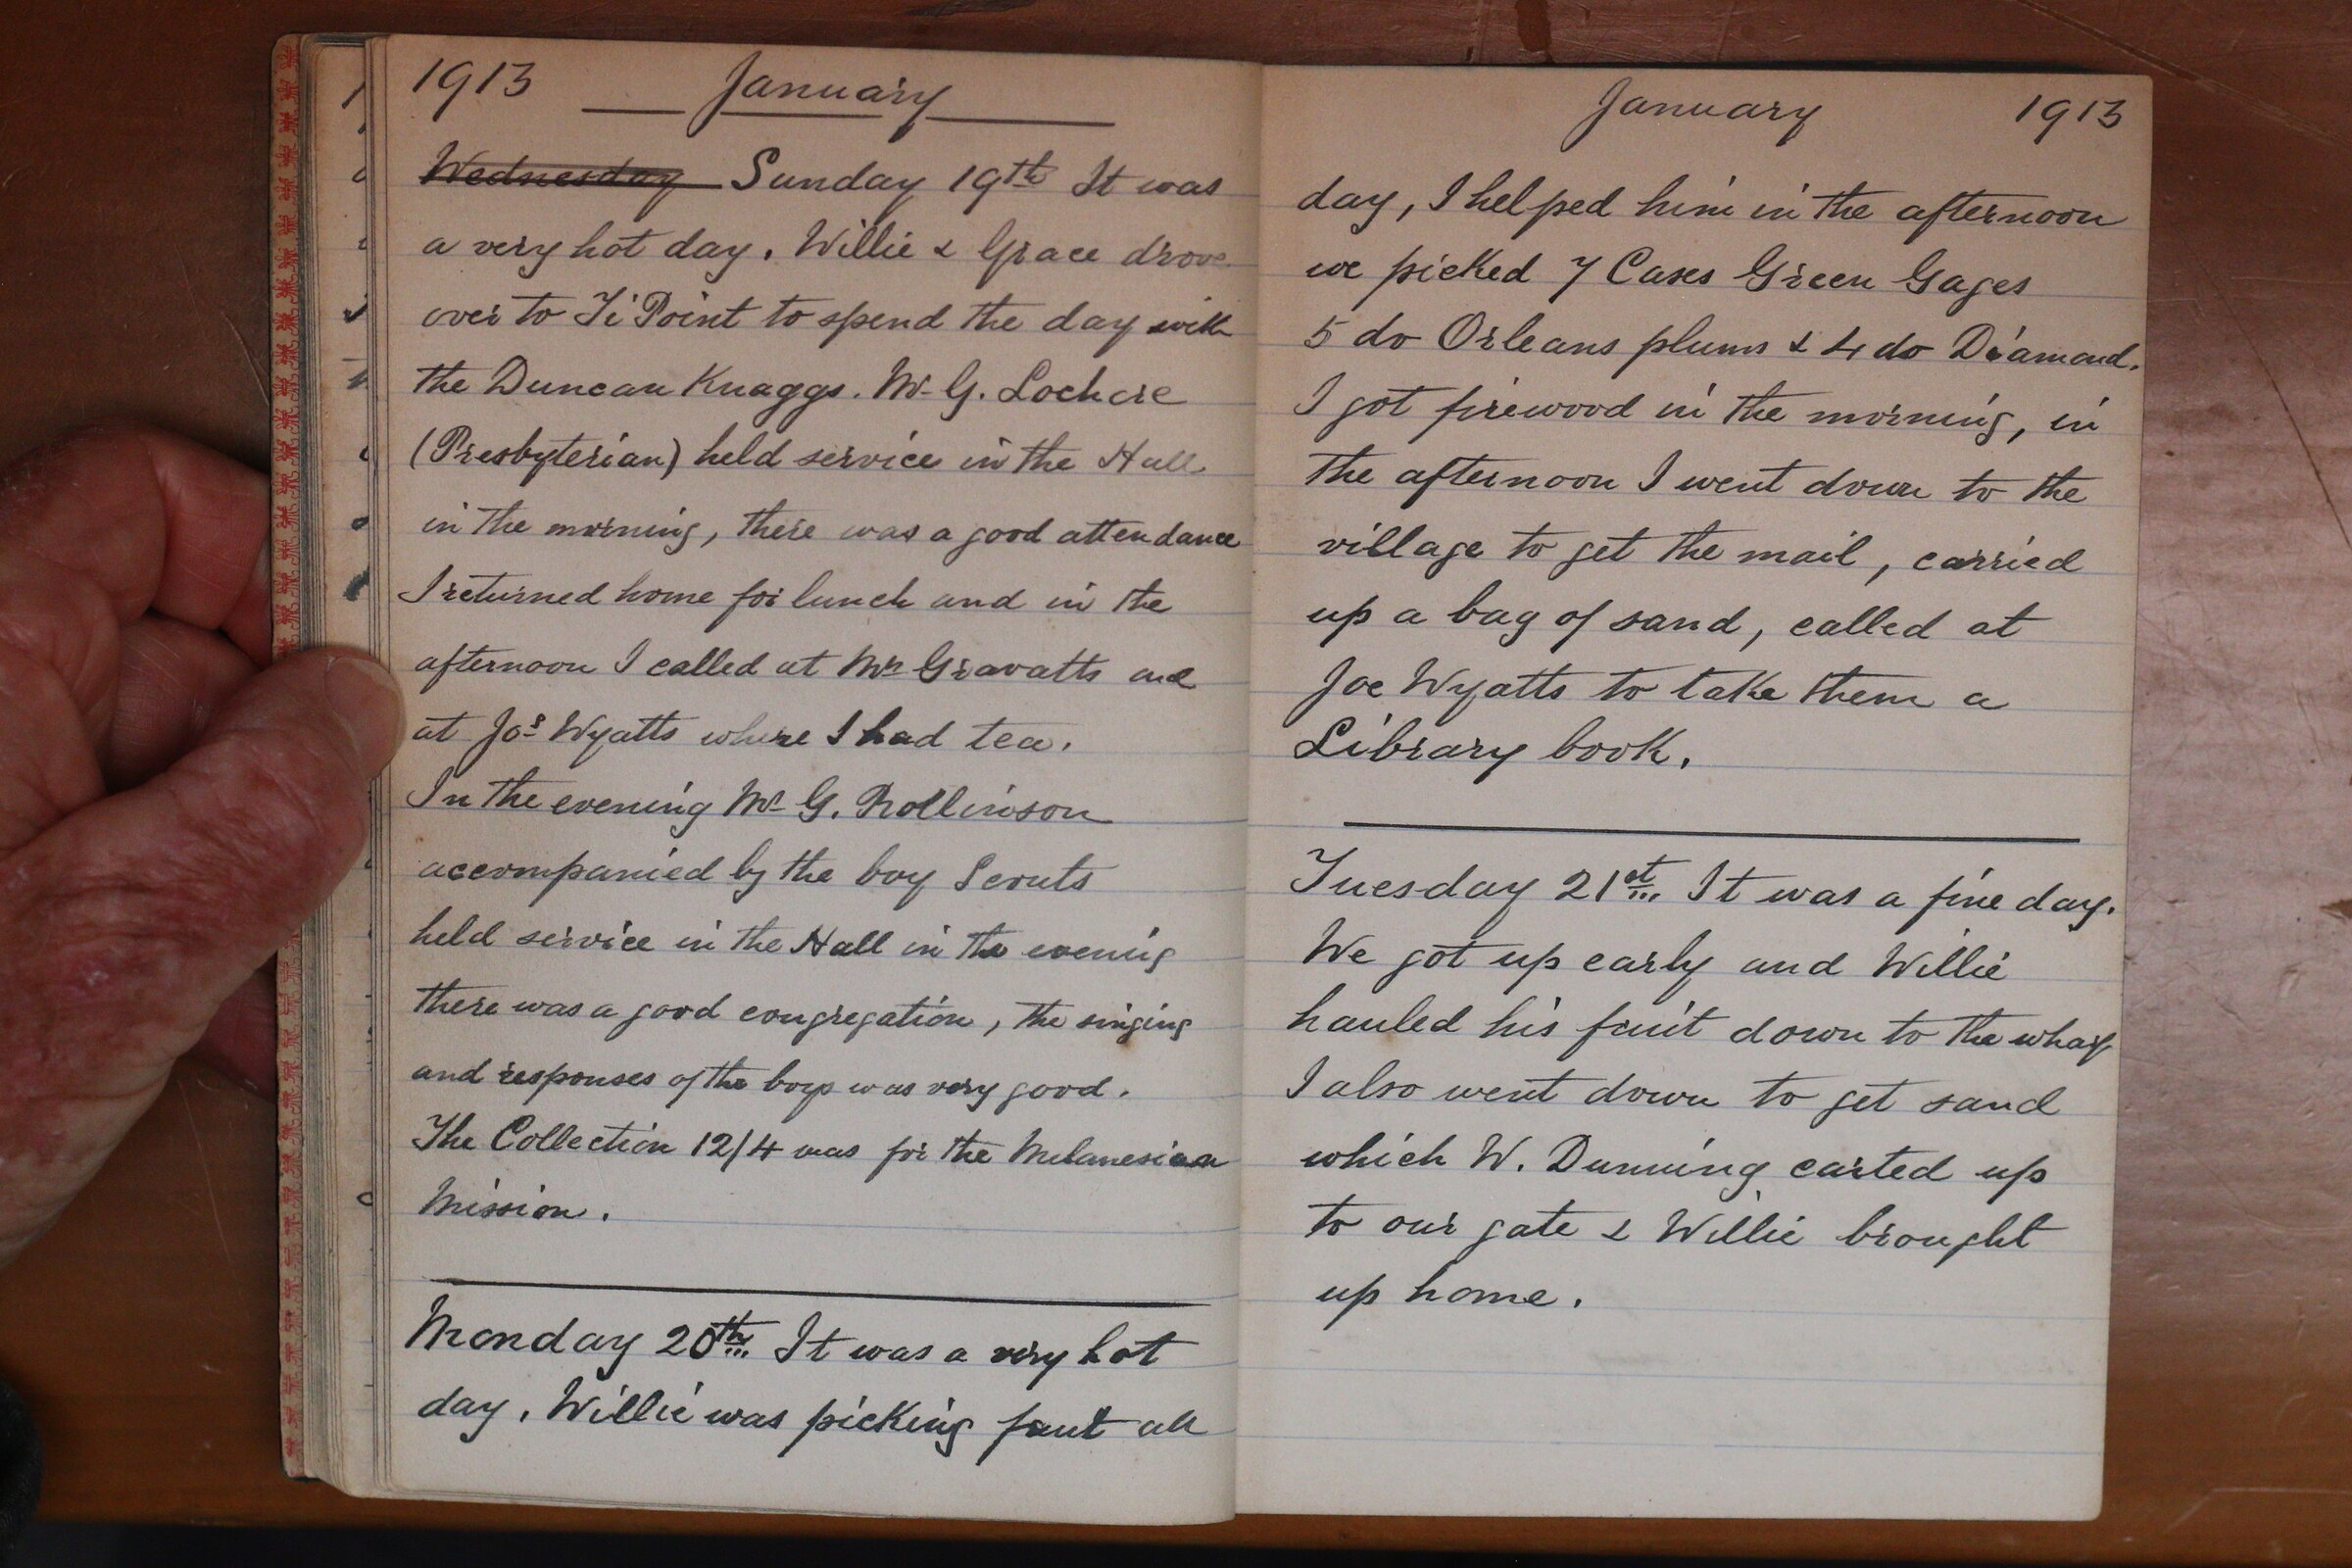 1913 January
~~Wednesday~~ Sunday 19th It was
a very hot day. Willie & Grace drove
over to Ti Point to spend the day with
the Duncan Knaggs. Mr G. Lochore
(Presbyterian) held service in the Hall
in the morning, there was a good attendance
I returned home for lunch and in the
afternoon I called at Mrs Gravatts and
at Jos Wyatts where I had tea.
In the evening Mr G. Rollinson
accompanied by the boy Scouts
held service in the Hall in the evening
there was a good congregation, the singing
and responses of the boys was very good.
The Collection 12/4 was for the Melanesian
Mission.
Monday 20th It was a very hot
day. Willie was picking fruit all
January 1913
day, I helped him in the afternoon
we picked 7 Cases Green Gages
5 do Orleans plums & 4 do Diamond.
I got firewood in the morning, in
the afternoon I went down to the
village to get the mail, carried
up a bag of sand, called at
Joe Wyatts to take them a
Library book.
Tuesday 21st It was a fine day.
We got up early and Willie
hauled his fruit down to the wharf
I also went down to get sand
which W. Dunning carted up
to our gate & Willie brought
up home.